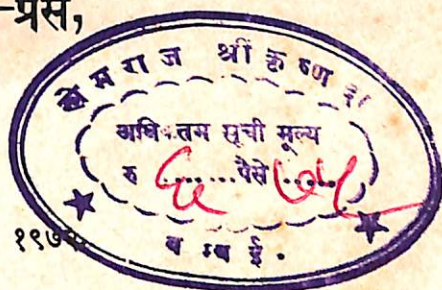 -प्रेस,
खेमराज श्रीकृष्णदा
अधिकतम सूची मूल्य
रु ६ ......पैसे ७५
१९७
बम्बई.